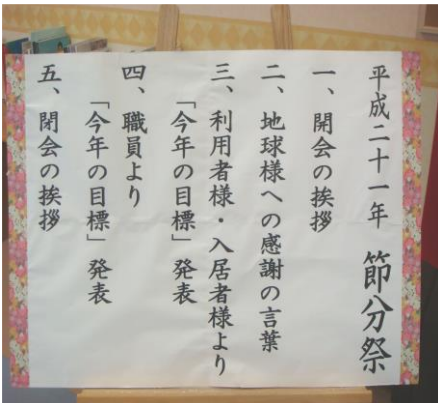 平成二十一年 節分祭
一、開会の挨拶
二、地球様への感謝の言葉
三、利用者様・入居者様より
「今年の目標」発表
四、職員より
「今年の目標」発表
五、閉会の挨拶